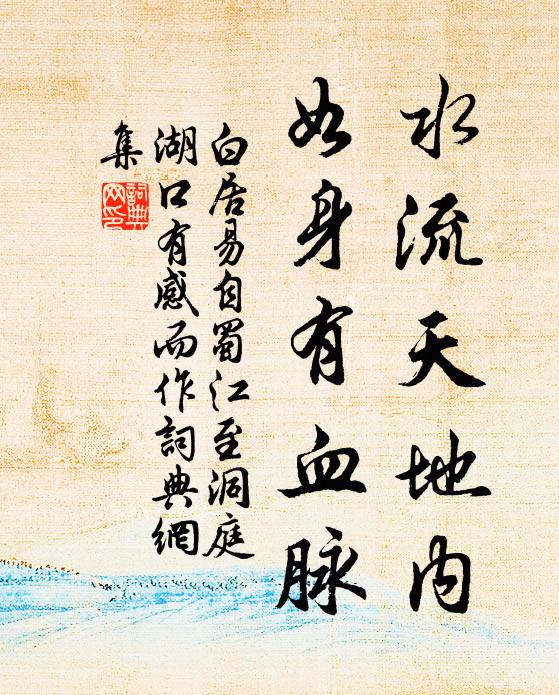 水流天地内
如身有血脉
白居易自蜀江至洞庭
湖口有感而作詞典網
集
詞典
网印